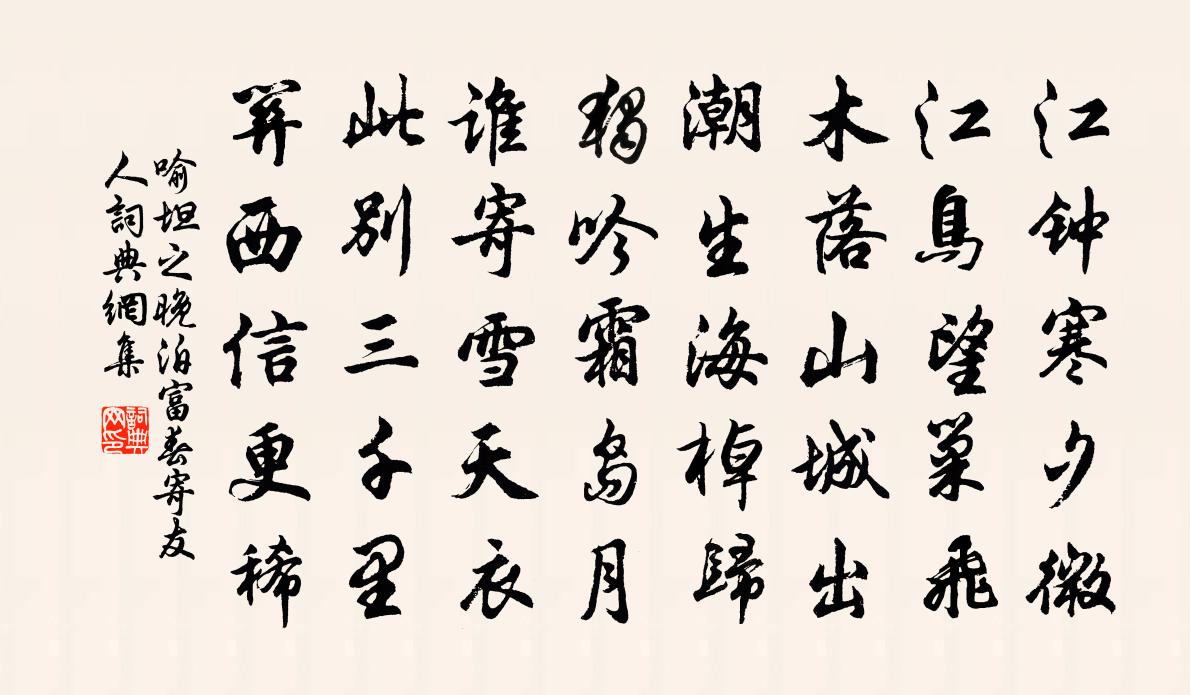 江钟寒夕微
江鳥望巢飛
木落山城出
潮生海棹歸
獨吟霜島月
谁寄雪天衣
此别三千里
关西信更稀
喻坦之晚泊富春寄友
人詞典網集
詞典
网印